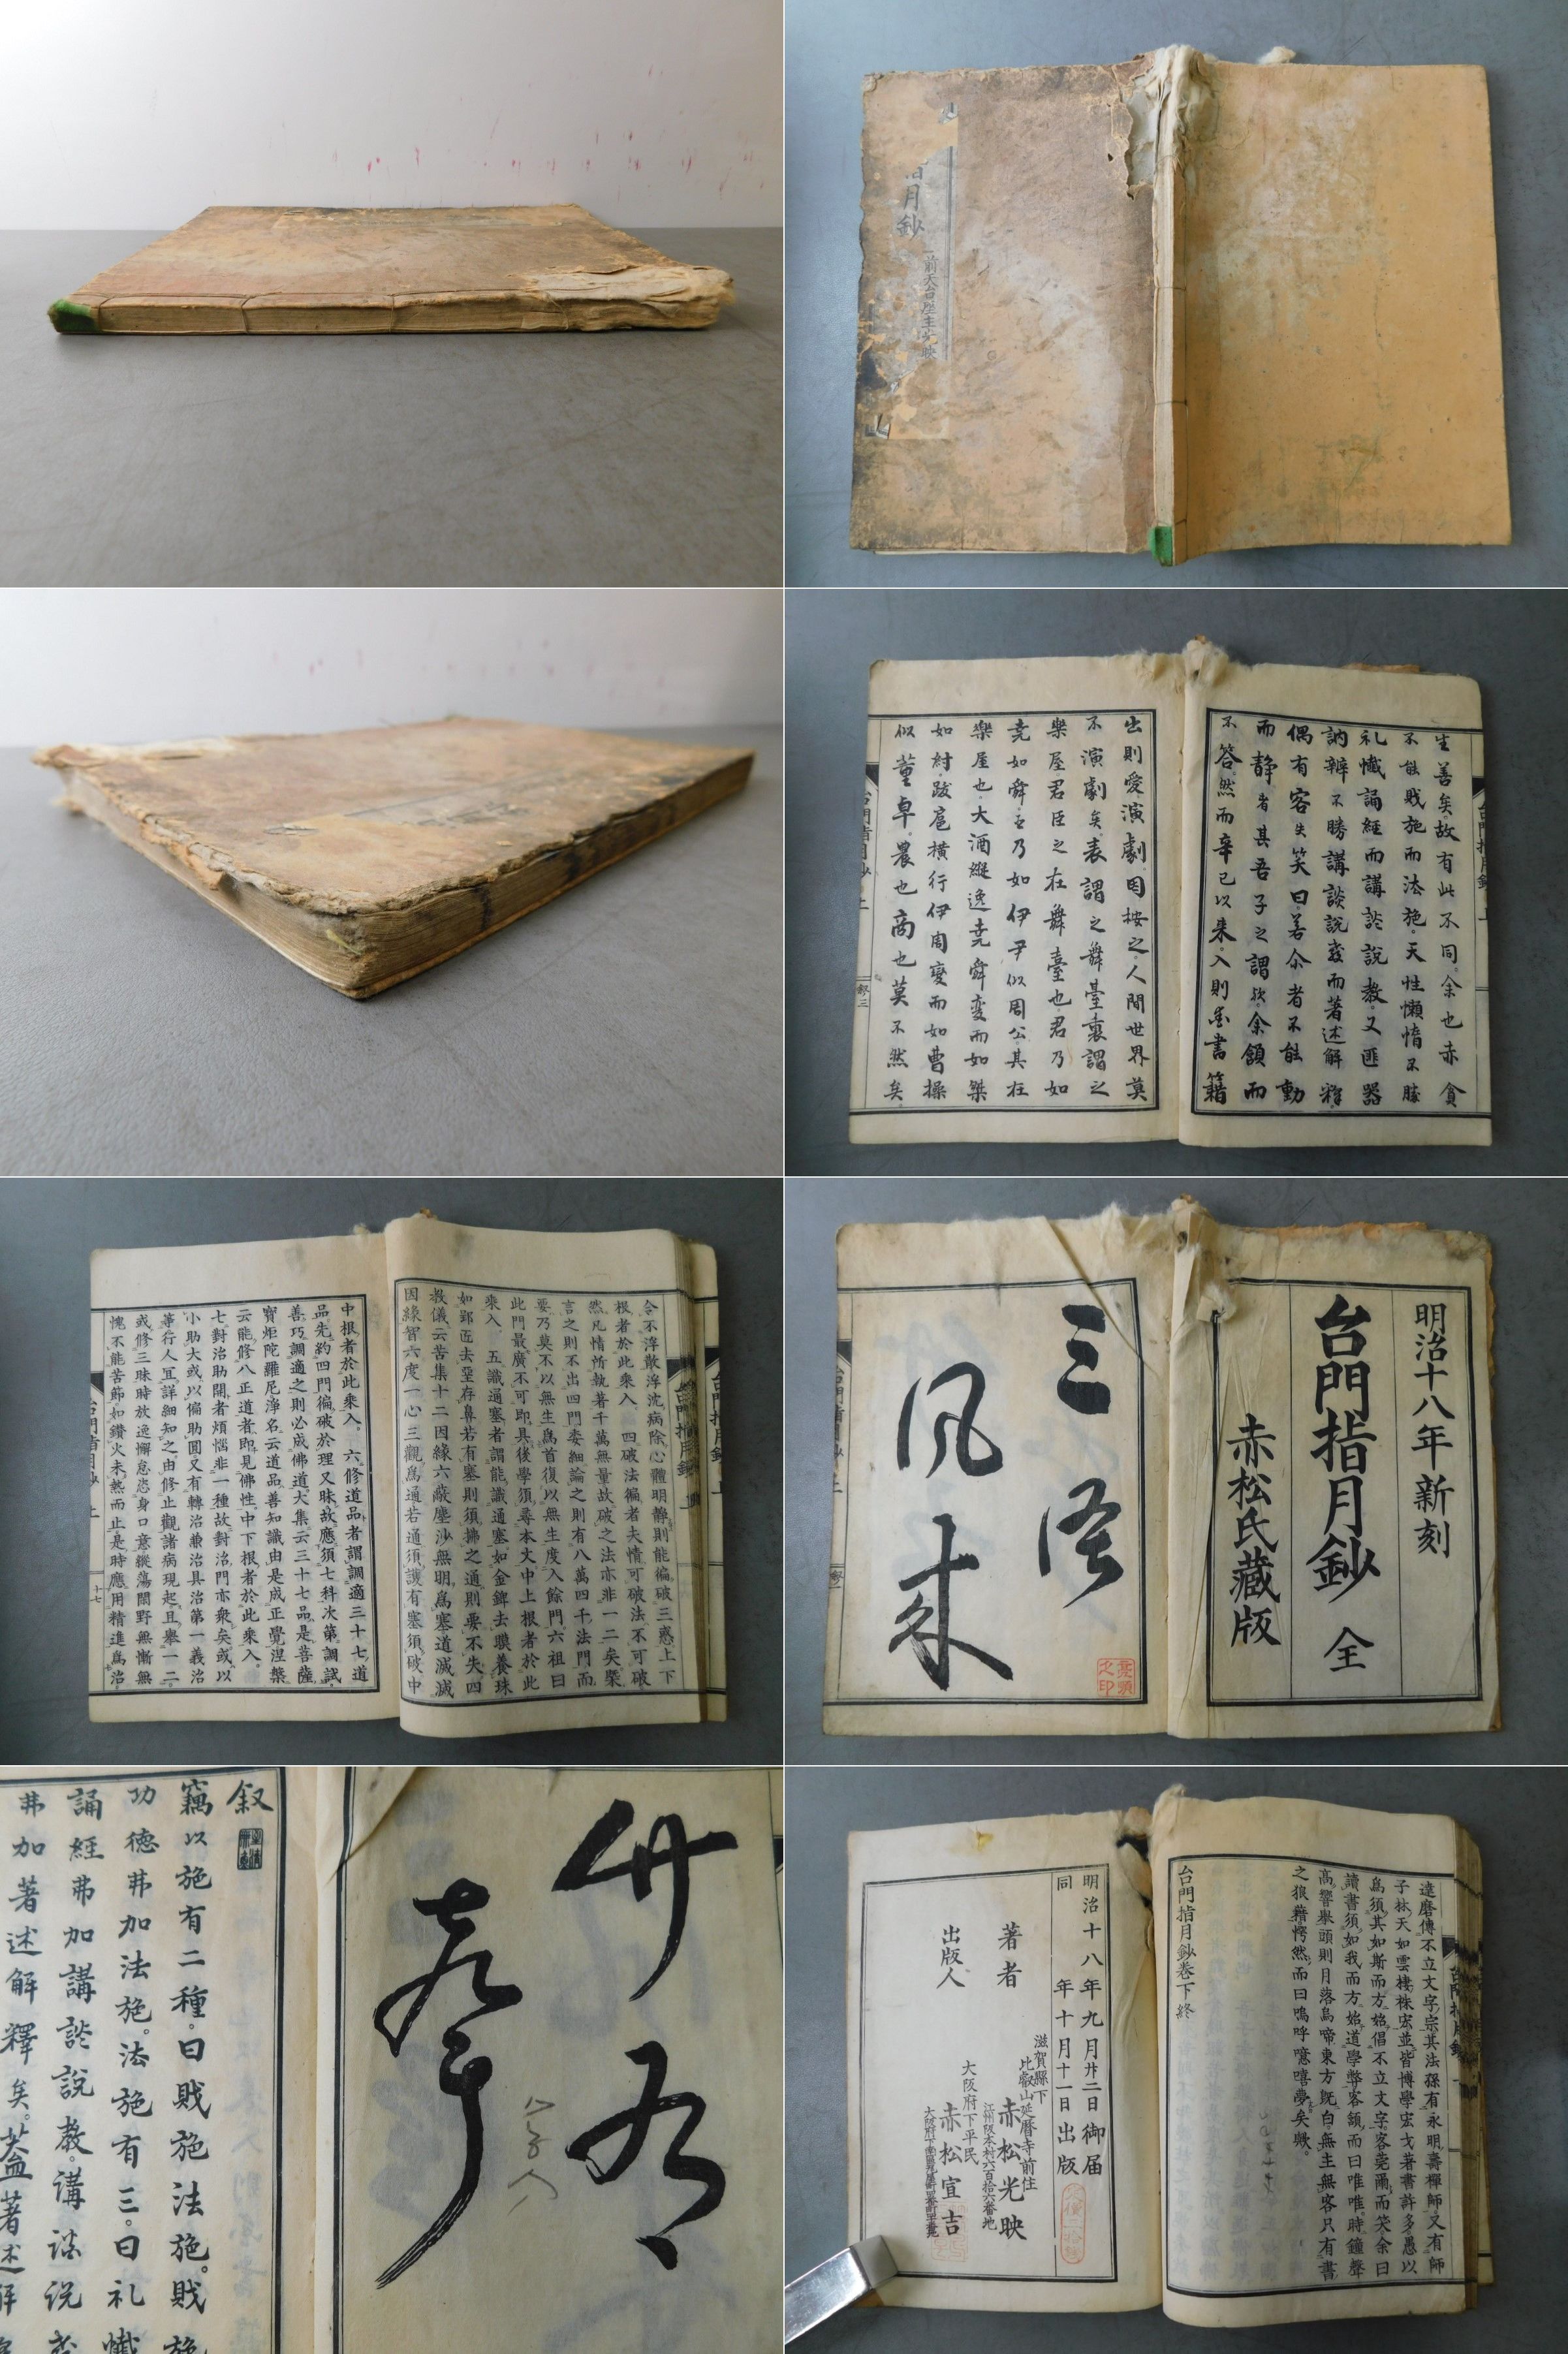 指月鈔
前天台座主光映
山
生善矣故有此不同余也赤貪
不能賎施而法施天性懶惰不勝
礼懺誦経而講談説教又匪器
訥辨不勝講談説教而著述解釋
偶有客失笑曰若尒者不能動
而静者其吾子之謂欤余頷而
不答然而辛巳以来入則愛書籍
台門指月鈔 上
出則愛演劇因按之人間世界莫
不演劇矣表謂之舞臺裏謂之
楽屋君臣之在舞臺也君乃如
堯如舜臣乃如伊尹似周公其在
楽屋也大酒縦逸堯舜変而如桀
如紂跋扈横行伊周変而如曹操
似董卓農也商也莫不然矣
台門指月鈔 上
叙三
令不浮散浮沈病除心體明静則能徧破三惑上下
根者於此乗入 四破法徧者夫情可破法不可破
然凡情所執著千萬無量故破之法亦非一二矣槩
言之則不出四門委細論之則有八萬四千法門而
要乃莫不以無生爲首復以無生度入餘門六祖曰
此門最廣不可即具後學須尋本文中上根者於此
乗入 五識通塞者謂能識通塞如金錍去瞙養珠
如郢匠去堊存鼻若有塞則須拂之通則要不失四
教儀云苦集十二因緣六蔽塵沙無明爲塞道滅滅
因緣智六度一心三觀爲通若通須護有塞須破中
台門指月鈔 上
中根者於此乗入 六修道品者謂調適三十七道
品先約四門徧破於理又昧故應須七科次第調試
善巧調適之則必成佛道大集云三十七品是菩薩
寶炬陀羅尼淨名云道品善知識由是成正覺涅槃
云能修八正道者即見佛性中下根者於此乗入
七對治助開者煩惱非一種故對治門亦衆矣或以
小助大或以偏助圓又有轉治兼治具治第一義治
等行人冝詳細知之由修止觀諸病現起且擧一二
或修三昧時放逸懈怠恣身口意縱蕩閙野無慚無
愧不能苦節如鑚火未熱而止是時應用精進爲治
台門指月鈔 上
十七
明治十八年新刻
台門指月鈔 全
赤松氏藏版
三
風来
之印
叙
竊以施有二種曰賎施法施賎施
功德弗加法施法施有三曰礼懺
誦經弗加講談説教講談説教
弗加著述解釋矣蓋著述解
達磨傳不立文字宗其法孫有永明壽禪師又有師
子林天如雲棲袾宏並皆博學宏才著書許多愚以
爲須其如斯而方始倡不立文字客莞爾而笑余曰
讀書須如我而方始道學弊客頷而曰唯唯時鐘聲
高響擧頭則月落烏啼東方既白無主無客只有書
之狼籍愕然而曰嗚呼噫嘻夢矣歟
台門指月鈔巻下終
明治十八年九月廿二日御届
同 年十月十一日出版
著者
滋賀縣下
比叡山延暦寺前住
赤松光映
江州阪本村六百拾六番地
出版人
大阪府下平民
赤松宣吉